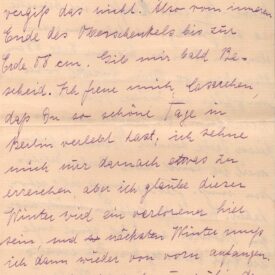 vergiß das nicht. Also vom inneren
Ende des Oberschenkels bis zur
Erde 78 cm. Gib mir bald Be-
scheid. Ich freue mich,
daß Du so schöne Tage in
Berlin verlebt hast, ich sehne
mich nur darnach etwas zu
erreichen aber ich glaube dieser
Winter wird ein verlorener hier
sein, und nächsten Winter muß
ich dann wieder von vorn anfangen,